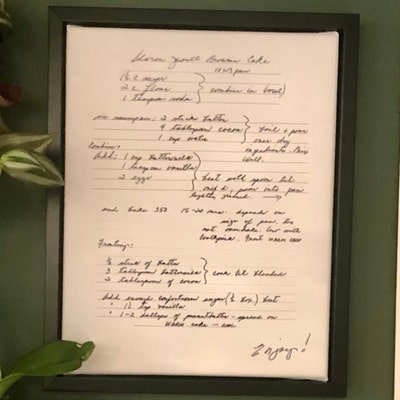 Brownie Cake
11x13 pan
1½ c sugar
2 c flour } combine in bowl
1 teaspoon soda
in saucepan: 2 sticks butter
4 tablespoon cocoa } boil & pour
1 cup water over dry
ingredients. Mix
well.
Combine:
Add: 1 cup buttermilk
1 teaspoon vanilla
2 eggs } beat with spoon til
mix'd, pour into pan
lightly greased →
and bake 350 15-20 min. depends on
size of pan. Do
not overbake. Test with
toothpick. Frost warm cake
Frosting:
½ stick of butter
3 tablespoon buttermilk } cook til blended
2 tablespoon of cocoa
Add enough confectioners sugar (½ box) beat
" 1½ tsp vanilla
" 1-2 dollops of peanut butter - spread on
warm cake - cool
Enjoy!